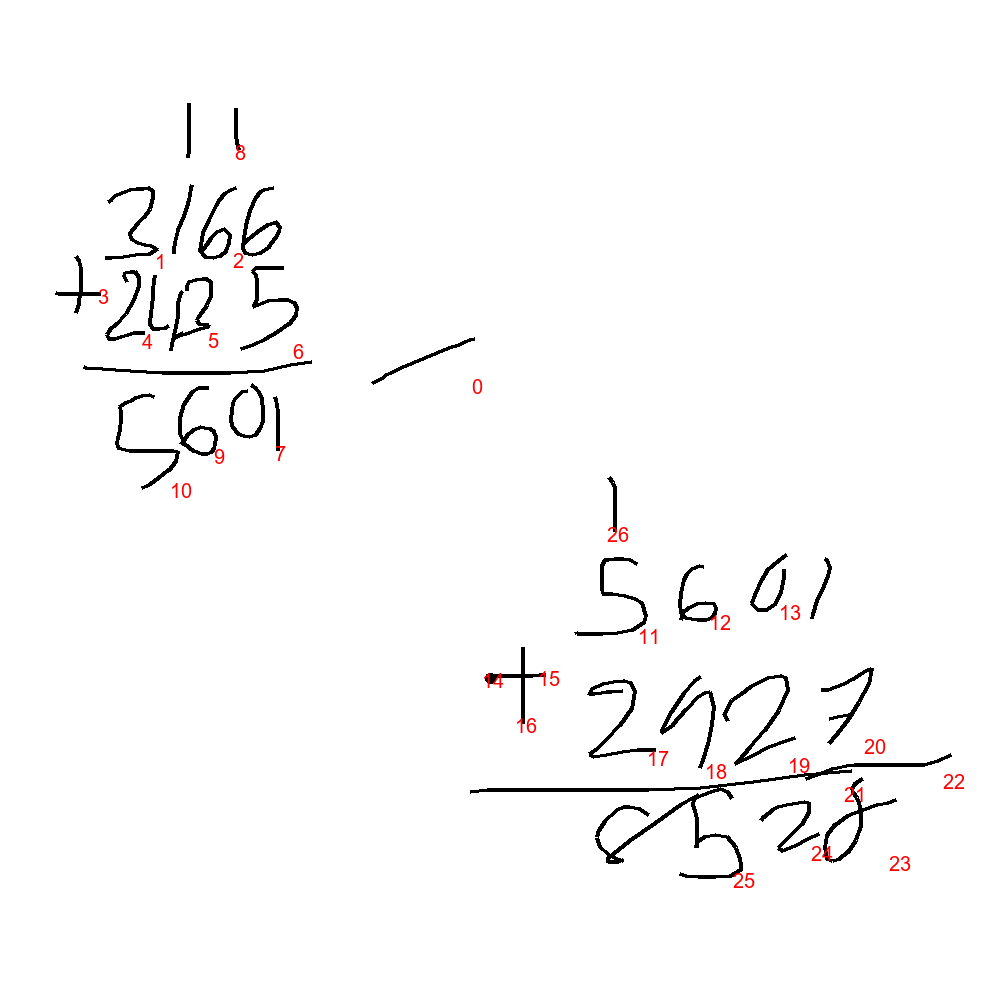 1 1
8
3166
1 2
+2435
3
4 5
6
0
5601
9 7
10
1
26
5601
11 12 13
+2927
14 15
16
17 18 19 20
22
8528
21
24 23
25